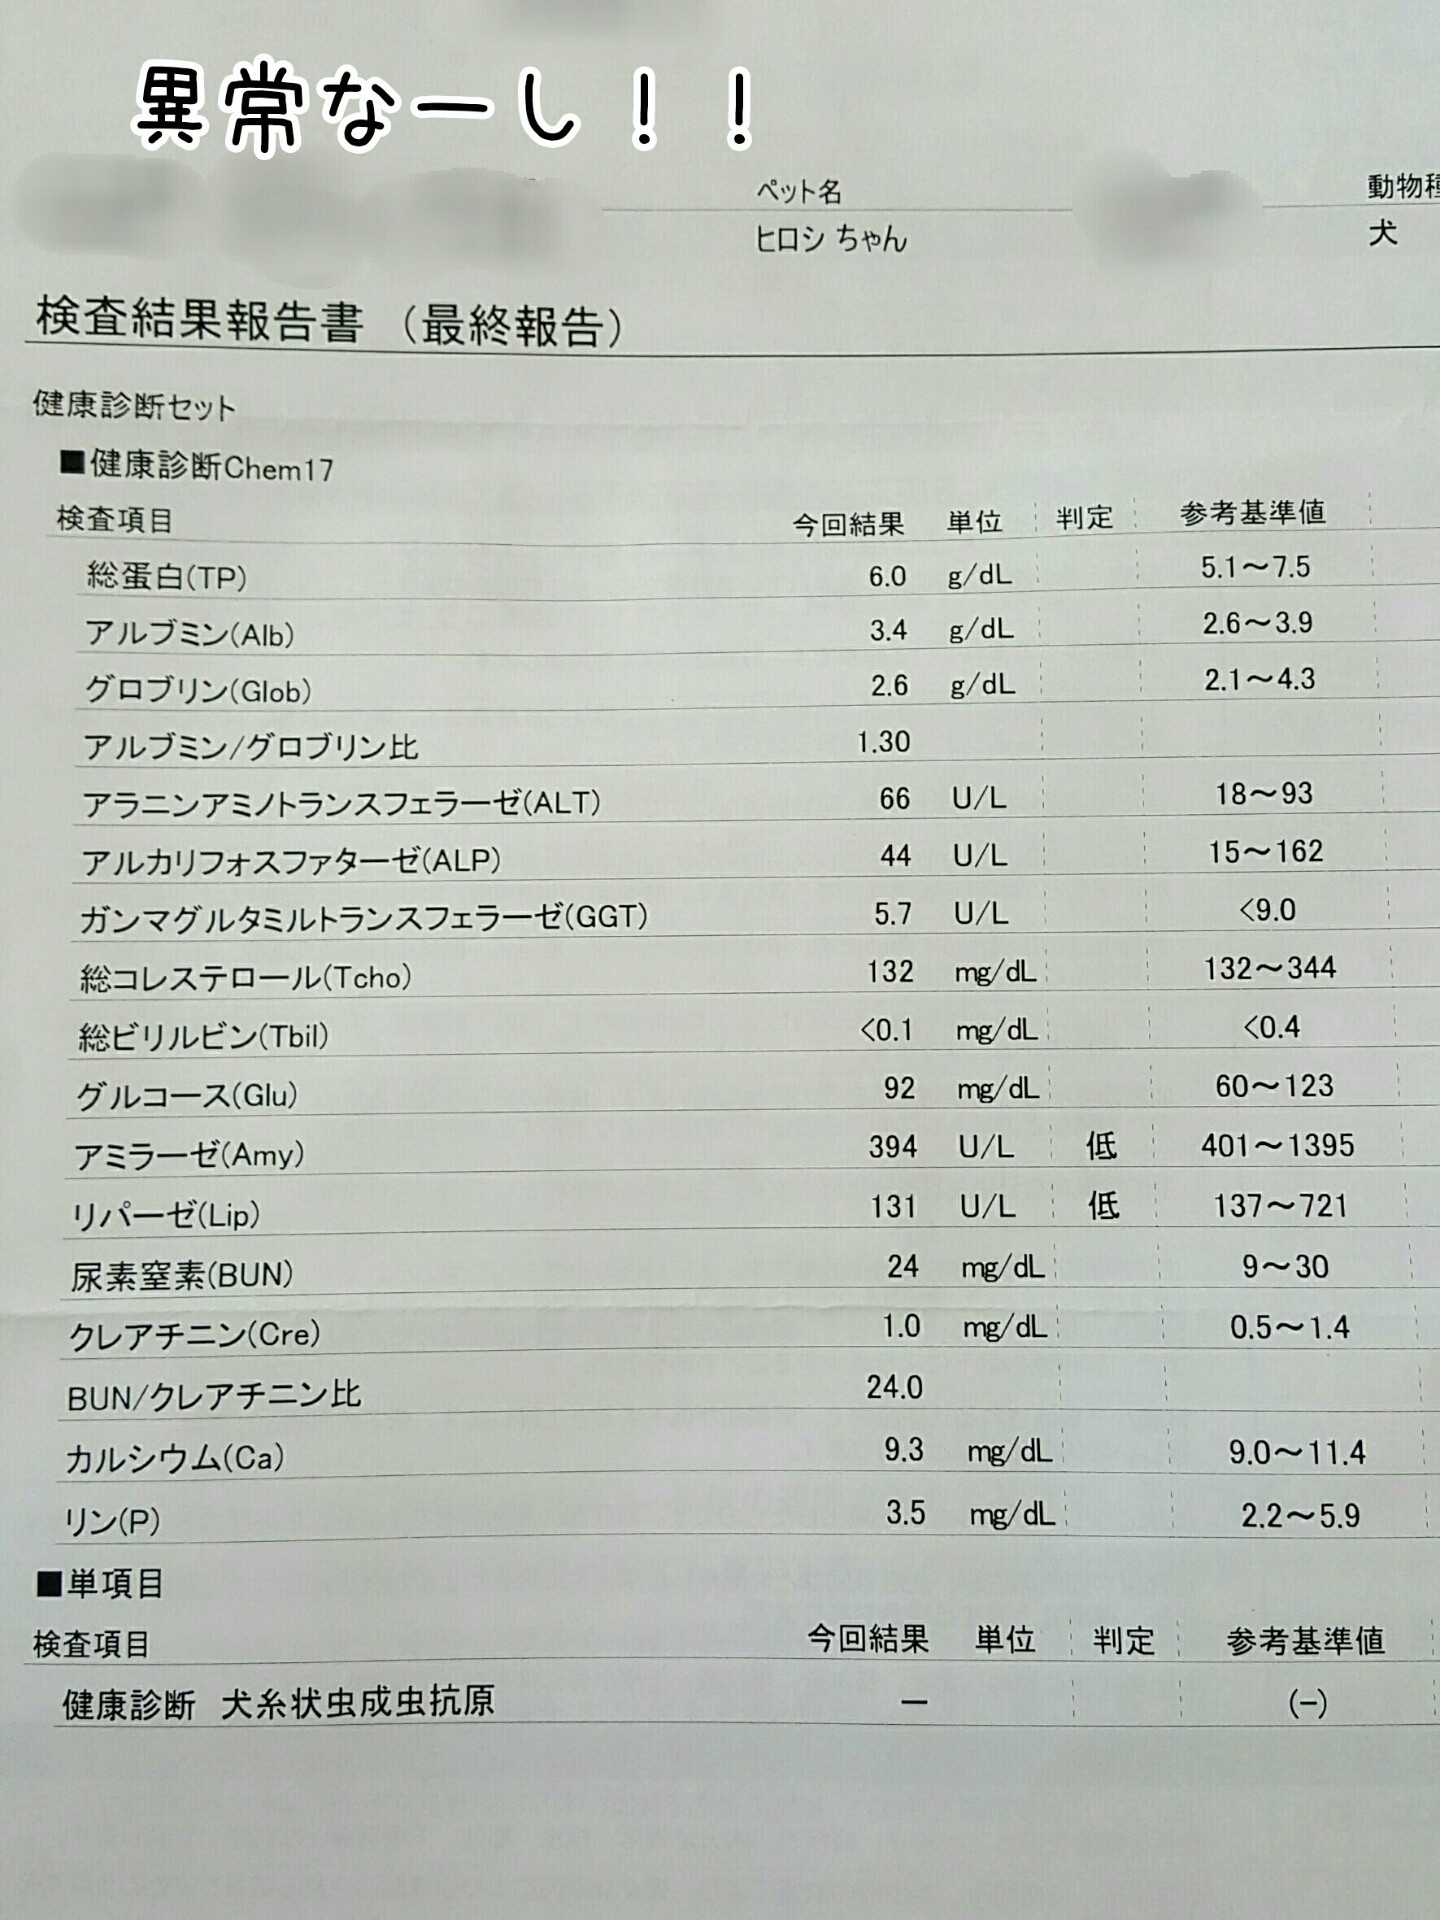 異常なーし！！
ペット名
動物種
ヒロシ ちゃん
犬
検査結果報告書 （最終報告）
健康診断セット
■健康診断Chem17
検査項目 今回結果 単位 判定 参考基準値
総蛋白(TP) 6.0 g/dL 5.1～7.5
アルブミン(Alb) 3.4 g/dL 2.6～3.9
グロブリン(Glob) 2.6 g/dL 2.1～4.3
アルブミン/グロブリン比 1.30
アラニンアミノトランスフェラーゼ(ALT) 66 U/L 18～93
アルカリフォスファターゼ(ALP) 44 U/L 15～162
ガンマグルタミルトランスフェラーゼ(GGT) 5.7 U/L <9.0
総コレステロール(Tcho) 132 mg/dL 132～344
総ビリルビン(Tbil) <0.1 mg/dL <0.4
グルコース(Glu) 92 mg/dL 60～123
アミラーゼ(Amy) 394 U/L 低 401～1395
リパーゼ(Lip) 131 U/L 低 137～721
尿素窒素(BUN) 24 mg/dL 9～30
クレアチニン(Cre) 1.0 mg/dL 0.5～1.4
BUN/クレアチニン比 24.0
カルシウム(Ca) 9.3 mg/dL 9.0～11.4
リン(P) 3.5 mg/dL 2.2～5.9
■単項目
検査項目 今回結果 単位 判定 参考基準値
健康診断 犬糸状虫成虫抗原 － (－)